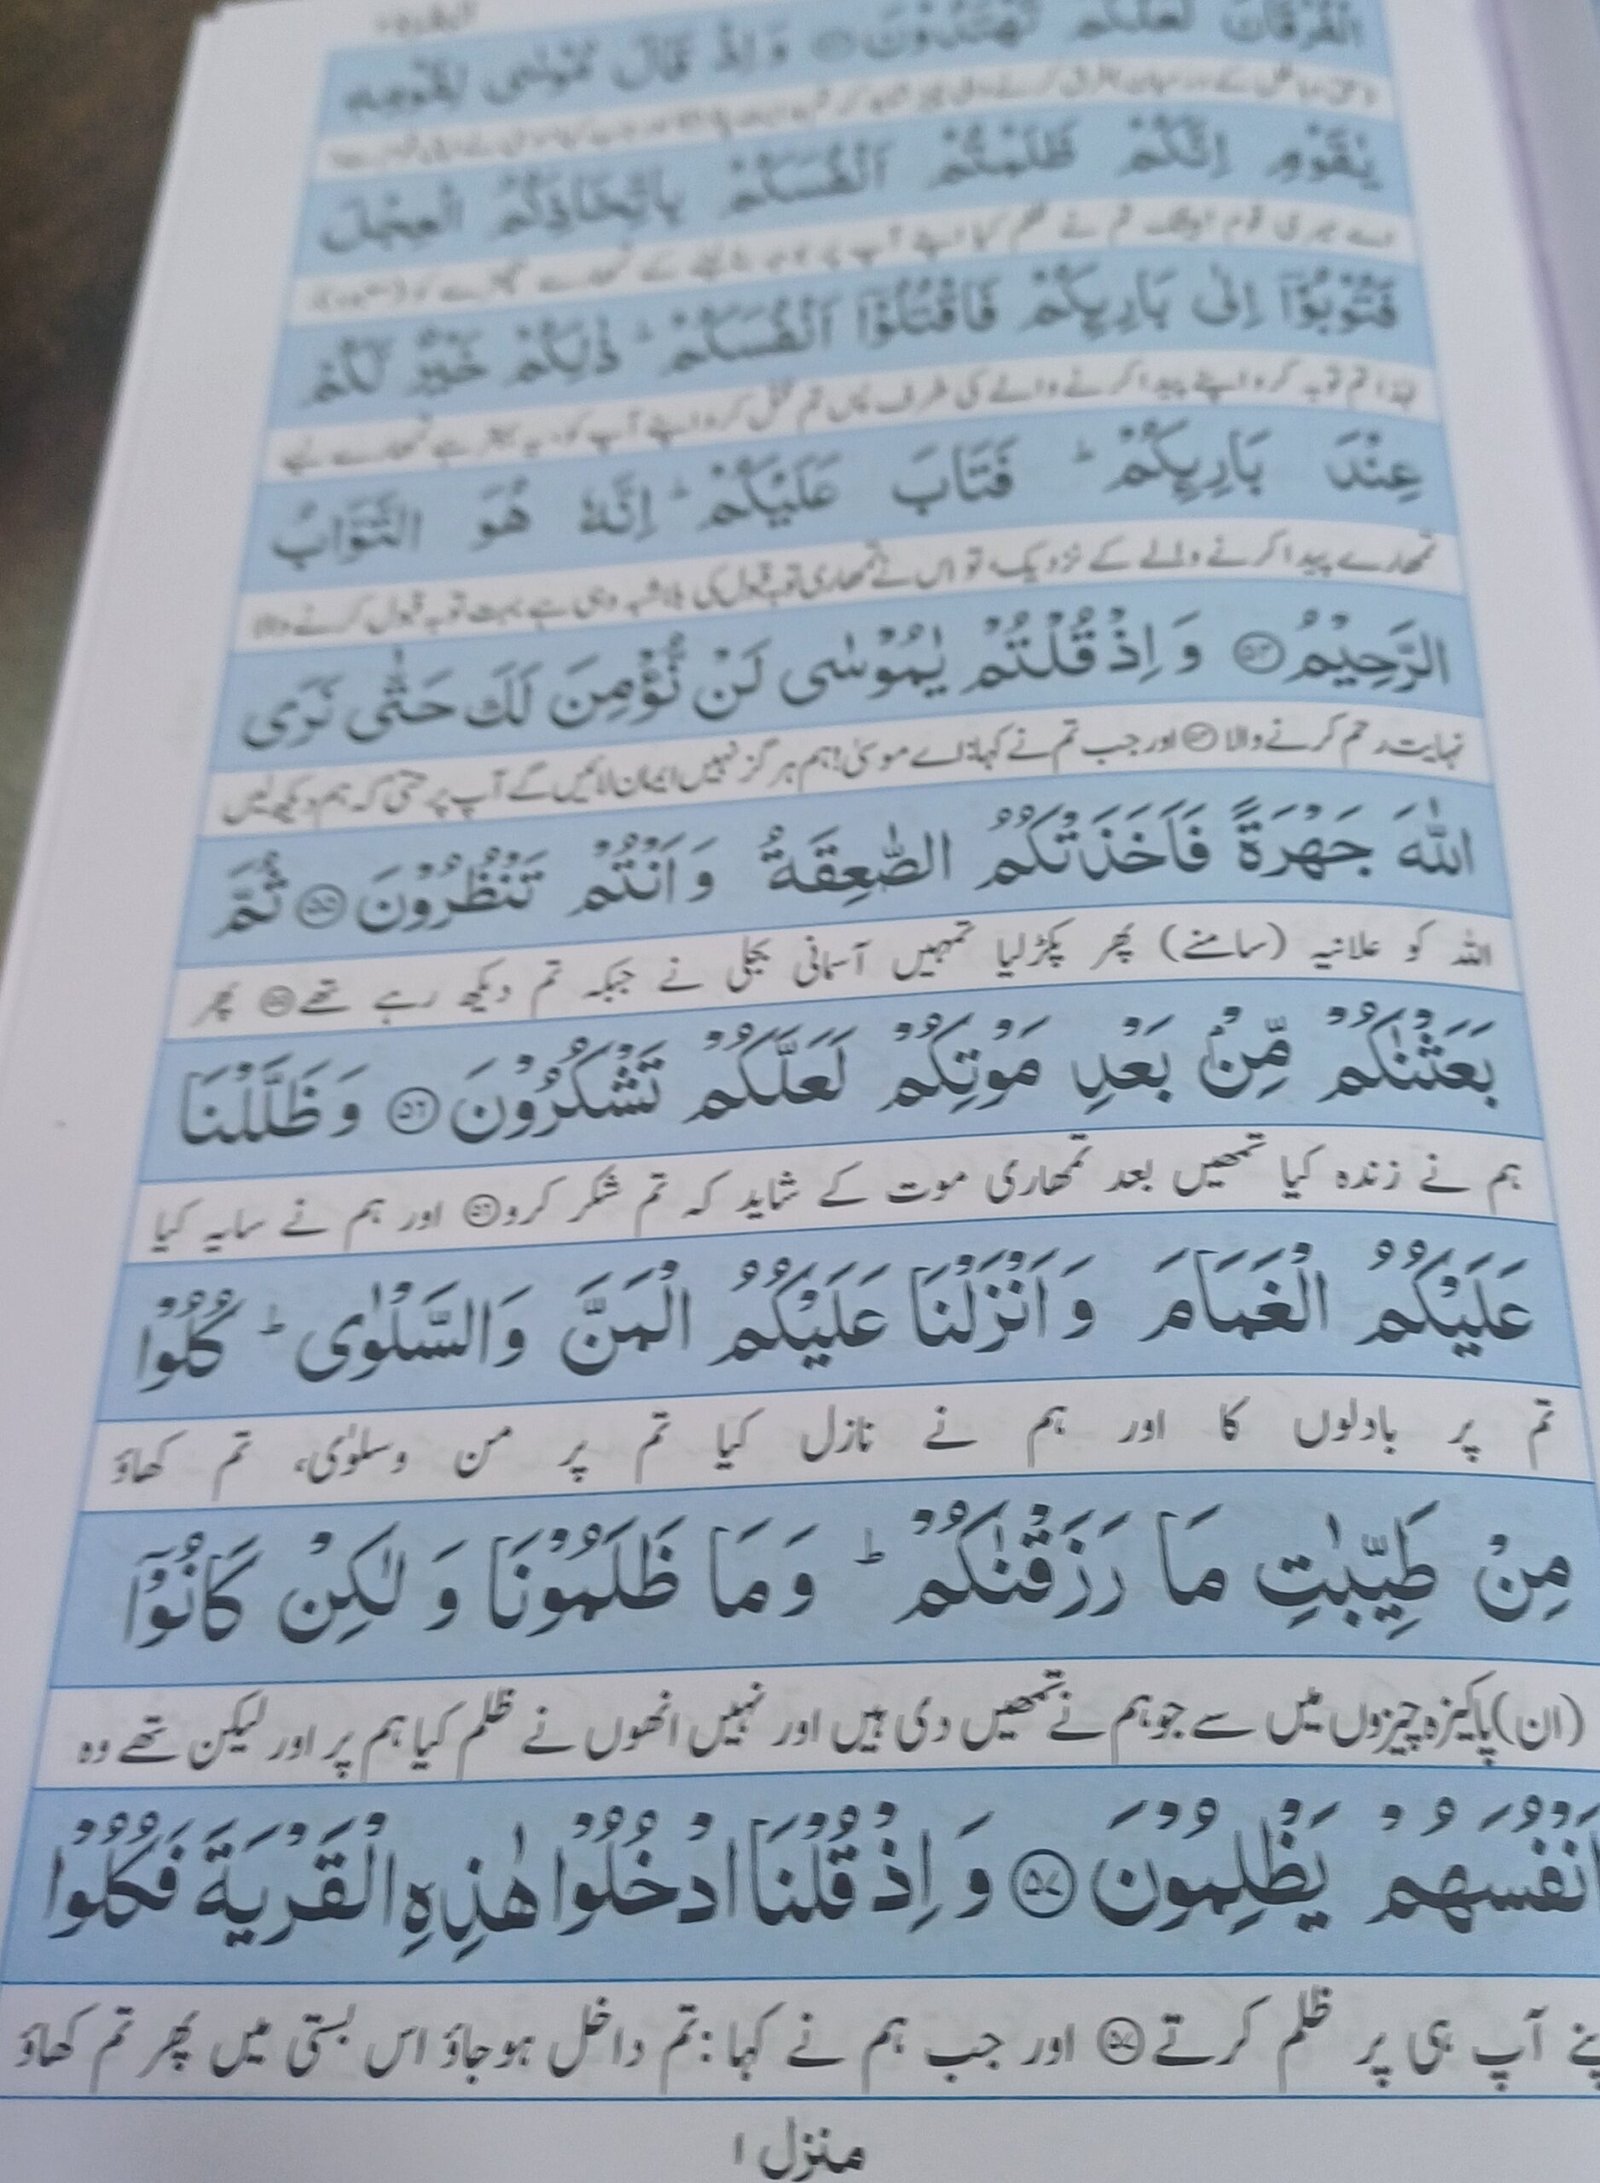 الْفُرْقَانَ لَعَلَّكُمْ تَهْتَدُوْنَ وَ اِذْ قَالَ مُوْسٰى لِقَوْمِهٖ
يٰقَوْمِ اِنَّكُمْ ظَلَمْتُمْ اَنْفُسَكُمْ بِاتِّخَاذِكُمُ الْعِجْلَ
اے میری قوم تم نے ظلم کیا اپنے آپ پر
فَتُوْبُوْۤا اِلٰى بَارِىِٕكُمْ فَاقْتُلُوْۤا اَنْفُسَكُمْ ؕ ذٰلِكُمْ خَيْرٌ لَّكُمْ
لہٰذا تم توبہ کرو اپنے پیدا کرنے والے کی طرف پس تم قتل کرو اپنے آپ کو، یہ بہتر ہے تمھارے لیے
عِنْدَ بَارِىِٕكُمْ ؕ فَتَابَ عَلَيْكُمْ ؕ اِنَّهٗ هُوَ التَّوَّابُ
تمھارے پیدا کرنے والے کے نزدیک، تو اس نے تمھاری توبہ قبول کی بلاشبہ وہی ہے بہت توبہ قبول کرنے والا
الرَّحِيْمُ ۝۵۴ وَ اِذْ قُلْتُمْ يٰمُوْسٰى لَنْ نُّؤْمِنَ لَكَ حَتّٰى نَرَى
نہایت رحم کرنے والا ۝۵۴ اور جب تم نے کہا: اے موسیٰ! ہم ہرگز نہیں ایمان لائیں گے آپ پر حتیٰ کہ ہم دیکھ لیں
اللّٰهَ جَهْرَةً فَاَخَذَتْكُمُ الصّٰعِقَةُ وَ اَنْتُمْ تَنْظُرُوْنَ ۝۵۵ ثُمَّ
اللہ کو علانیہ (سامنے) پھر پکڑ لیا تمہیں آسمانی بجلی نے جبکہ تم دیکھ رہے تھے ۝۵۵ پھر
بَعَثْنٰكُمْ مِّنْۢ بَعْدِ مَوْتِكُمْ لَعَلَّكُمْ تَشْكُرُوْنَ ۝۵۶ وَ ظَلَّلْنَا
ہم نے زندہ کیا تمھیں بعد تمھاری موت کے شاید کہ تم شکر کرو ۝۵۶ اور ہم نے سایہ کیا
عَلَيْكُمُ الْغَمَامَ وَ اَنْزَلْنَا عَلَيْكُمُ الْمَنَّ وَالسَّلْوٰى ؕ كُلُوْا
تم پر بادلوں کا اور ہم نے نازل کیا تم پر من وسلوٰی، تم کھاؤ
مِنْ طَيِّبٰتِ مَا رَزَقْنٰكُمْ ؕ وَ مَا ظَلَمُوْنَا وَ لٰكِنْ كَانُوْۤا
(ان) پاکیزہ چیزوں میں سے جو ہم نے تمھیں دی ہیں اور نہیں انھوں نے ظلم کیا ہم پر اور لیکن تھے وہ
اَنْفُسَهُمْ يَظْلِمُوْنَ ۝۵۷ وَ اِذْ قُلْنَا ادْخُلُوْا هٰذِهِ الْقَرْيَةَ فَكُلُوْا
پنے آپ ہی پر ظلم کرتے ۝۵۷ اور جب ہم نے کہا: تم داخل ہو جاؤ اس بستی میں پھر تم کھاؤ
منزل ۱